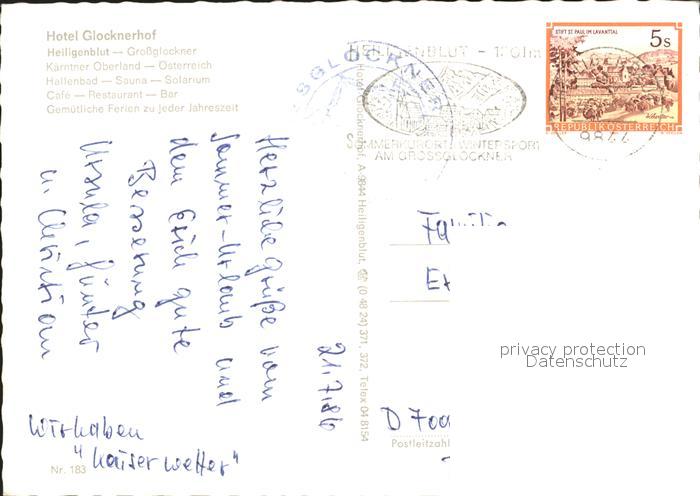 Hotel Glocknerhof
Heiligenblut — Großglockner
Kärntner Oberland — Österreich
Hallenbad — Sauna — Solarium
Café — Restaurant — Bar
Gemütliche Ferien zu jeder Jahreszeit
21.7.86
Herzliche Grüße vom
Sommer-Urlaub und
dem Erich gute
Besserung
Ursula, Günter
u. Christian
Wir haben
"Kaiserwetter"
Nr. 183
Hotel Glocknerhof, A-9844 Heiligenblut, ☏ (0 48 24) 371, 372, Telex 04 8154
HEILIGENBLUT -
SOMMERKURORT u. WINTERSPORT
AM GROSSGLOCKNER
9844
STIFT ST. PAUL IM LAVANTTAL
5s
REPUBLIK ÖSTERREICH
D 700
Postleitzahl
privacy protection
Datenschutz